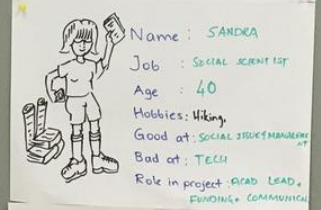 Name: SANDRA
Job : SOCIAL SCIENTIST
Age : 40
Hobbies: Hiking,
Good at: SOCIAL ISSUE & MANAGEMENT
Bad at: TECH
Role in project: ACAD LEAD,
FUNDING + COMMUNICN